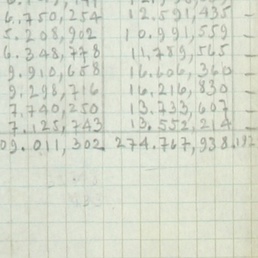 6.750,254 12.591,435 —
5.208,902 10.991,559 —
6.348,778 11.789,565 —
9.910,658 16.606,360 —
9.298,716 16.216,830 —
7.740,250 13.733,607 —
7.125,743 13.552,214 —
09.011,302 274.767,938.192